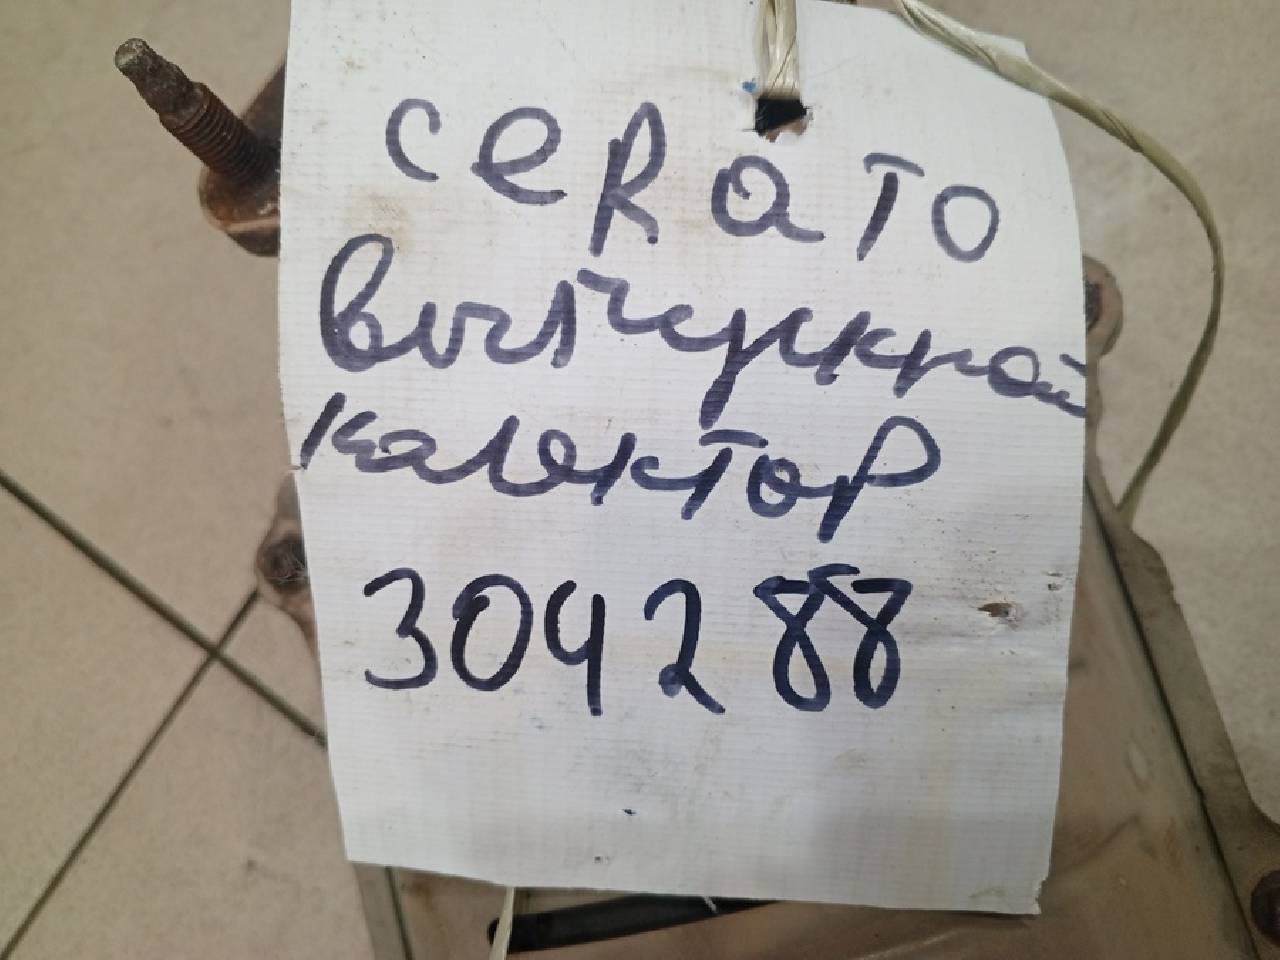 CeRaTo
выпускной
калектор
304288